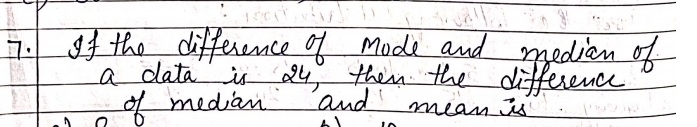 7. If the difference of Mode and median of
a data is 24, then the difference
of median and mean is